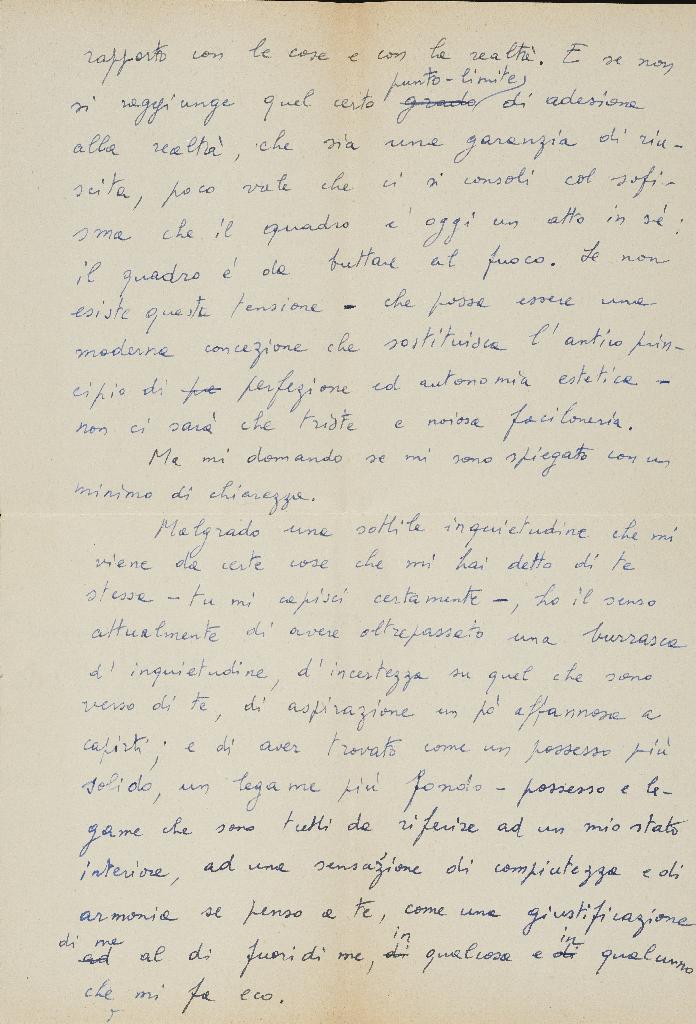 rapporto con le cose e con la realtà. E se non
punto-limite
si raggiunge quel certo grado di adesione
alla realtà, che sia una garanzia di riu-
scita, poco vale che ci si consoli col sofi-
sma che il quadro è oggi un atto in sé:
il quadro è da buttare al fuoco. Se non
esiste questa tensione - che possa essere una
moderna concezione che sostituisca l'antico prin-
cipio di pe perfezione ed autonomia estetica -
non ci sarà che triste e noiosa faciloneria.
Ma mi domando se mi sono spiegato con un
minimo di chiarezza.
Malgrado una sottile inquietudine che mi
viene da certe cose che mi hai detto di te
stessa - tu mi capisci certamente -, ho il senso
attualmente di avere oltrepassato una burrasca
d'inquietudine, d'incertezza su quel che sono
verso di te, di aspirazione un pò affannosa a
capirti; e di aver trovato come un possesso più
solido, un legame più fondo - possesso e le-
game che sono tutti da riferire ad un mio stato
interiore, ad una sensazione di compiutezza e di
armonia se penso a te, come una giustificazione
di me in in
ad al di fuori di me, di qualcosa e di qualcuno
che mi fa eco.